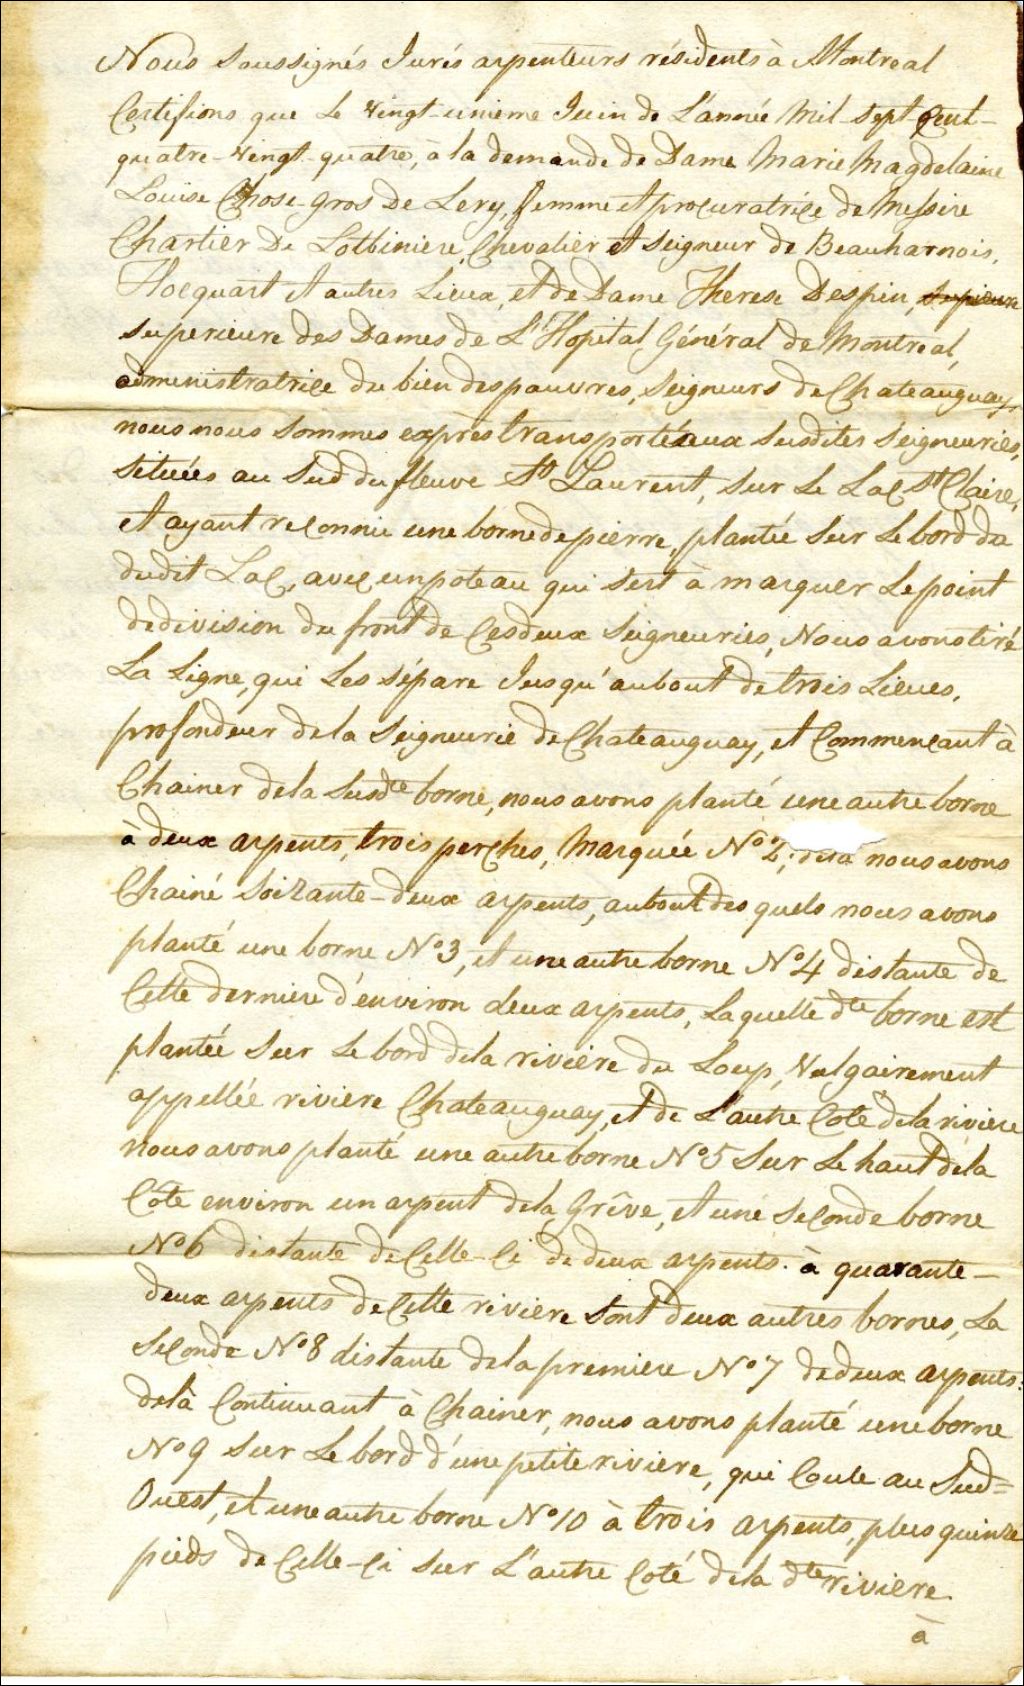 Nous Soussignés Jurés arpenteurs résidents à Montreal
Certifions que le vingt-unieme Juin de L'année Mil-sept-Cent-
quatre-vingt-quatre, à la demande de Dame Marie Magdelaine
Louise Chose-gros De Lery, femme et procuratrice de Messire
Chartier De Lotbiniere, Chevalier et Seigneur de Beauharnois,
Hocquart et autres Lieux, et de Dame Therese Despin,
Superieure des Dames de L'Hopital Général de Montreal,
administratrice du bien des pauvres, Seigneurs de Chateauguay,
nous nous sommes exprès transportés aux susdites Seigneuries,
Situées au Sud du fleuve St Laurent, sur le Lac St Claire,
et ayant reconnu une borne de pierre, plantée sur le bord du
dudit Lac, avec un poteau qui sert à marquer le point
de division du front de Ces deux Seigneuries, Nous avons tiré
La Ligne, qui Les sépare Jusqu'au bout de trois Lieues,
profondeur de la Seigneurie de Chateauguay, et Commencant à
Chainer de la susdte borne, nous avons planté une autre borne
à deux arpents, trois perches, Marquée No 2; de là nous avons
Chainé soixante-deux arpents, au bout des quels nous avons
planté une borne No 3, et une autre borne No 4 distante de
Cette derniere d'environ deux arpents, Laquelle dte borne est
plantée sur le bord de la riviére du Loup, Vulgairement
appellée riviere Chateauguay, et de L'autre Coté de la riviere
nous avons planté une autre borne No 5 sur le haut de la
Côte environ un arpent de la Grêve, et une seconde borne
No 6 distante de Celle-Ci de deux arpents. à quarante-
deux arpents de Cette riviere sont deux autres bornes, La
seconde No 8 distante de la premiere No 7 de deux arpents:
de là Continuant à Chainer, nous avons planté une borne
No 9 sur le bord d'une petite riviere, qui Coule au Sud=
Ouest, et une autre borne No 10 à trois arpents, plus quinze
pieds de Celle-Ci sur L'autre Coté de la dte riviere
à